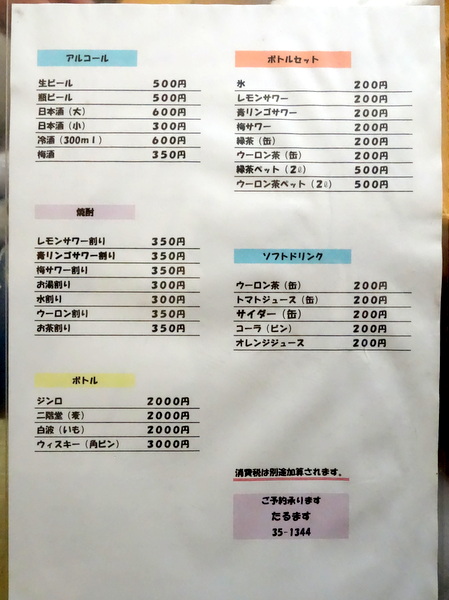 アルコール
生ビール 500円
瓶ビール 500円
日本酒（大） 600円
日本酒（小） 300円
冷酒（300ml） 600円
梅酒 350円
焼酎
レモンサワー割り 350円
青リンゴサワー割り 350円
梅サワー割り 350円
お湯割り 300円
水割り 300円
ウーロン割り 350円
お茶割り 350円
ボトル
ジンロ 2000円
二階堂（麦） 2000円
白波（いも） 2000円
ウィスキー（角ビン） 3000円
ボトルセット
氷 200円
レモンサワー 200円
青リンゴサワー 200円
梅サワー 200円
緑茶（缶） 200円
ウーロン茶（缶） 200円
緑茶ペット（2ℓ） 500円
ウーロン茶ペット（2ℓ） 500円
ソフトドリンク
ウーロン茶（缶） 200円
トマトジュース（缶） 200円
サイダー（缶） 200円
コーラ（ビン） 200円
オレンジジュース 200円
消費税は別途加算されます。
ご予約承ります
たるます
35-1344